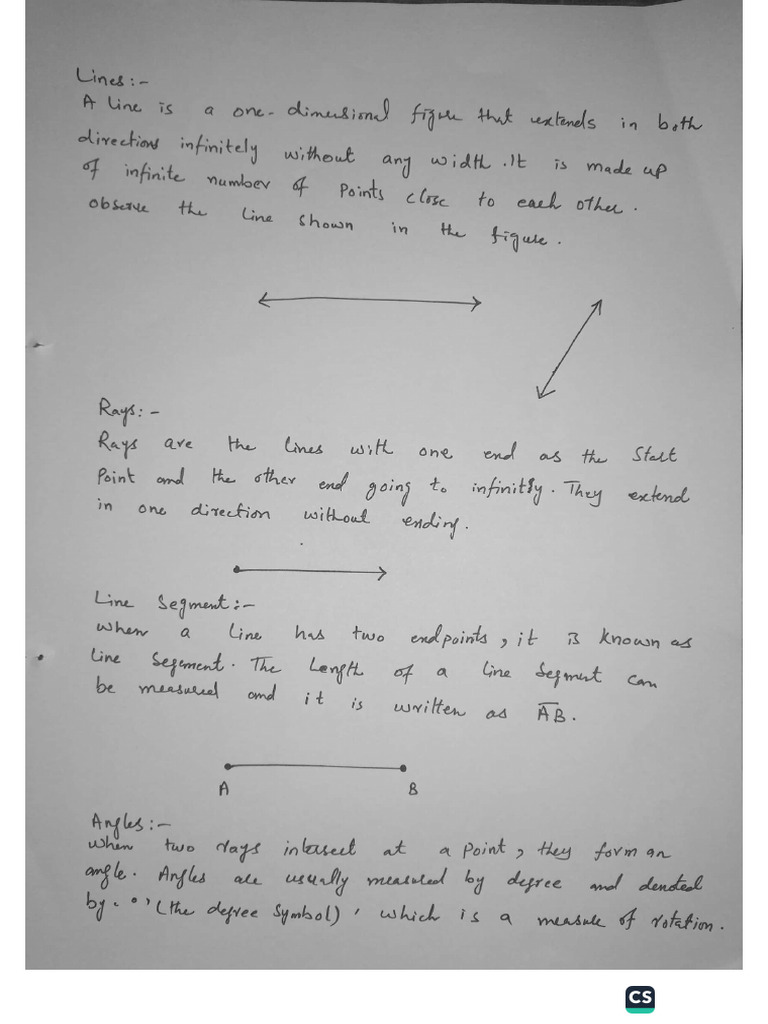 Lines:-
A Line is a one-dimensional figure that extends in both
directions infinitely without any width. It is made up
of infinite number of Points close to each other.
observe the Line shown in the figure.
Rays:-
Rays are the lines with one end as the Start
Point and the other end going to infinitly. They extend
in one direction without ending.
Line Segment:-
when a Line has two endpoints, it is known as
Line Segement. The Length of a Line Segment can
be measured and it is written as A̅B̅.
A B
Angles:-
when two rays intersect at a point, they form an
angle. Angles are usually measured by degree and denoted
by. °'(the degree symbol)' which is a measure of rotation.
CS